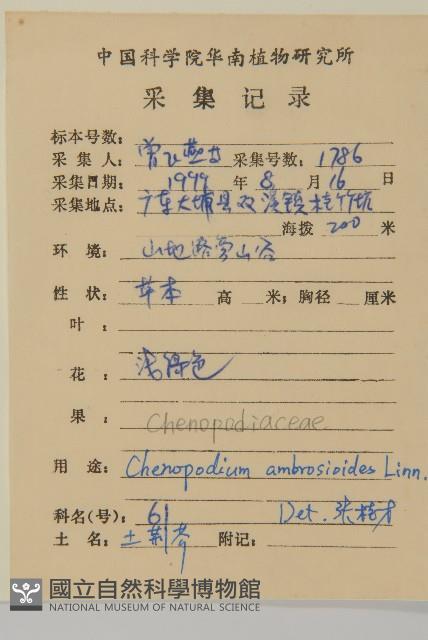 中国科学院华南植物研究所
采集记录
标本号数:
采集人: 曾飞燕 采集号数: 1786
采集日期: 1999 年 8 月 16 日
采集地点: 广东大埔县双溪镇 竹坑
海拨 200 米
环境: 山地路旁山谷
性状: 草本 高 米; 胸径 厘米
叶:
花: 浅绿色
果:
Chenopodiaceae
用途: Chenopodium ambrosioides Linn.
科名(号): 61 Det. 张桂才
土名: 土荆芥 附记:
國立自然科學博物館
NATIONAL MUSEUM OF NATURAL SCIENCE